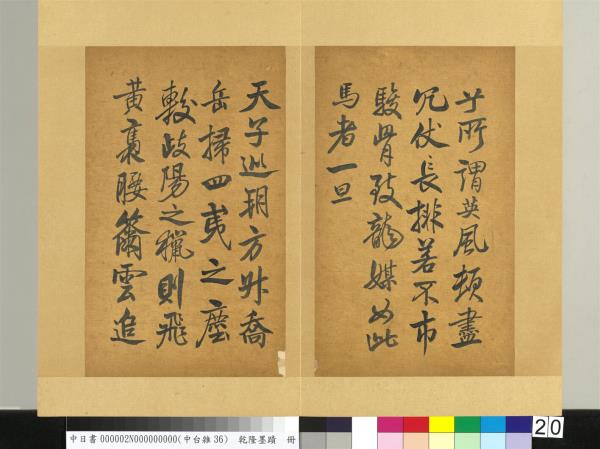 所謂英風頓盡
冗仗長排若不市
駿骨致龍媒如此
馬者一旦
天子巡朔方升喬
岳掃四夷之塵
較岐陽之獵則飛
黃褭腰籋雲追
中日書 000002N000000000(中台雜36) 乾隆墨蹟 冊
20